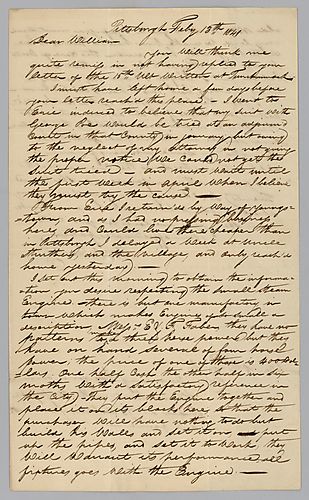 Pittsburgh Feby 13th 1841
Dear William
You will think me
quite remiss in not having replied to your
letter of the 15th Ult written at
I must have left home a few days before
your letter reached this place. — I went to
Erie induced to believe that my suit with
George W. would be tried at an adjourned
Court in that County (in January) but owing
to the neglect of my attorney in not giving
the proper notice, We could not get the
suit tried — and must wait until
the first Week in April When I believe
they must try the cause —
From Erie I returned by Way of Youngs-
-town, and as I had no pressing business
here, and could live there cheaper than
in Pittsburgh I delayed a Week at Uncle
Struthers, and the village, and only reach'd
home yesterday) —
I set out this morning to obtain the informa-
tion you desire respecting the small Steam
Engine — there is but one manufactory in
town which makes Engines of so small a
description Messrs E & F Faber they have no
patterns under three horse power, but they
have on hand several of four horse
power, the price of one of these is 400 Dol-
lars. One half Cash the other half in six
months With a satisfactory reference in
the City) They put the Engine together and
place it on its blocks here, so that the
purchaser Will have nothing to do but
build his Walls and set it on — put
up the pipes and set it to Work they
Will Warrant its performance, all
fixtures goes With the Engine —